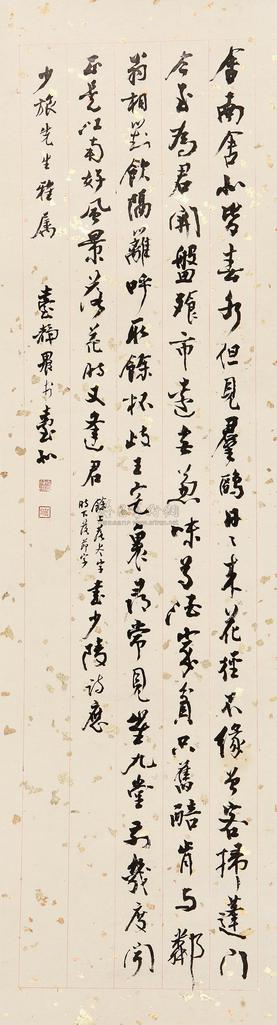 舍南舍北皆春水但見羣鷗日々來花徑不緣曾客掃蓬門
今始為君開盤飧市遠無兼味尊酒家貧只舊醅肯與鄰
翁相對飲隔籬呼取餘杯岐王宅裏尋常見崔九堂前幾度聞
正是江南好風景落花時又逢君
餘上落盡字
時下落節字
書少陵詩應
少旅先生雅屬
臺靜農於臺北